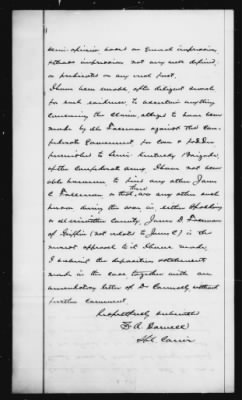 mere opinion based on general impression,
without impression not very well defined,
or predicated on any real fact.
I have been unable, after diligent search
for such evidence, to ascertain anything
concerning the claim, alleged to have been
made by Mr Freeman against the Con-
federate Government, for corn & fodder
furnished to Lewis' Kentucky Brigade,
of the Confederate army. I have not been
able however to find any other James
C Freeman or that there was any other such
person during the war in either Spalding
or Meriwether County. James D. Freeman
of Griffin (not related to James C) is the
nearest approach to it I have made.
I submit the deposition statements
made in the case together with an
letter of Dr Connally without
further comment.
Respectfully submitted
Sp. Com'r